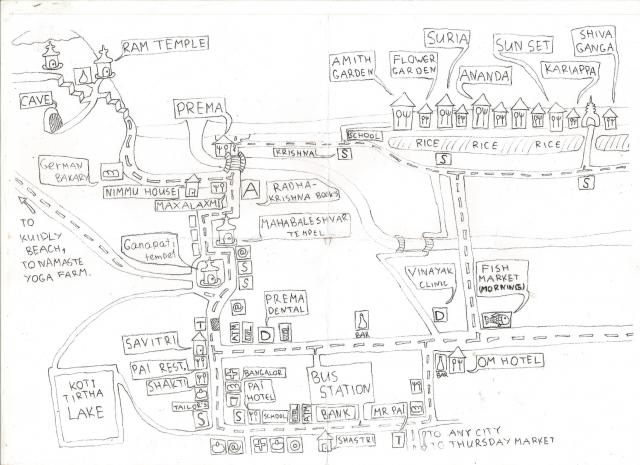 RAM TEMPLE
CAVE
PREMA
AMITH
GARDEN
FLOWER
GARDEN
SURIA
ANANDA
SUN SET
KARIAPPA
SHIVA
GANGA
SCHOOL
KRISHNA
S
RICE RICE RICE
S
S
GERMAN
BAKARY
NIMMU HOUSE
MAXALAXMI
A
RADHA-
KRISHNA BOOKS
MAHABALESHVAR
TEMPEL
Ganapati
tempel
TO
KUIDLY
BEACH,
TO NAMASTE
YOGA FARM.
@
S
S
@
VINAYAK
CLINIC
D
FISH
MARKET
(MORNING)
PREMA
DENTAL
T
ATM
D
BAR
SAVITRI
PAI REST.
SHAKTI
TAILOR'S
KOTI
TIRTHA
LAKE
BANGALOR
PAI
HOTEL
S
SCHOOL
ATM
BUS
STATION
BANK
MR PAI
BAR
JOM HOTEL
S
@
SHASTRI
T
TO ANY CITY
TO THURSDAY MARKET